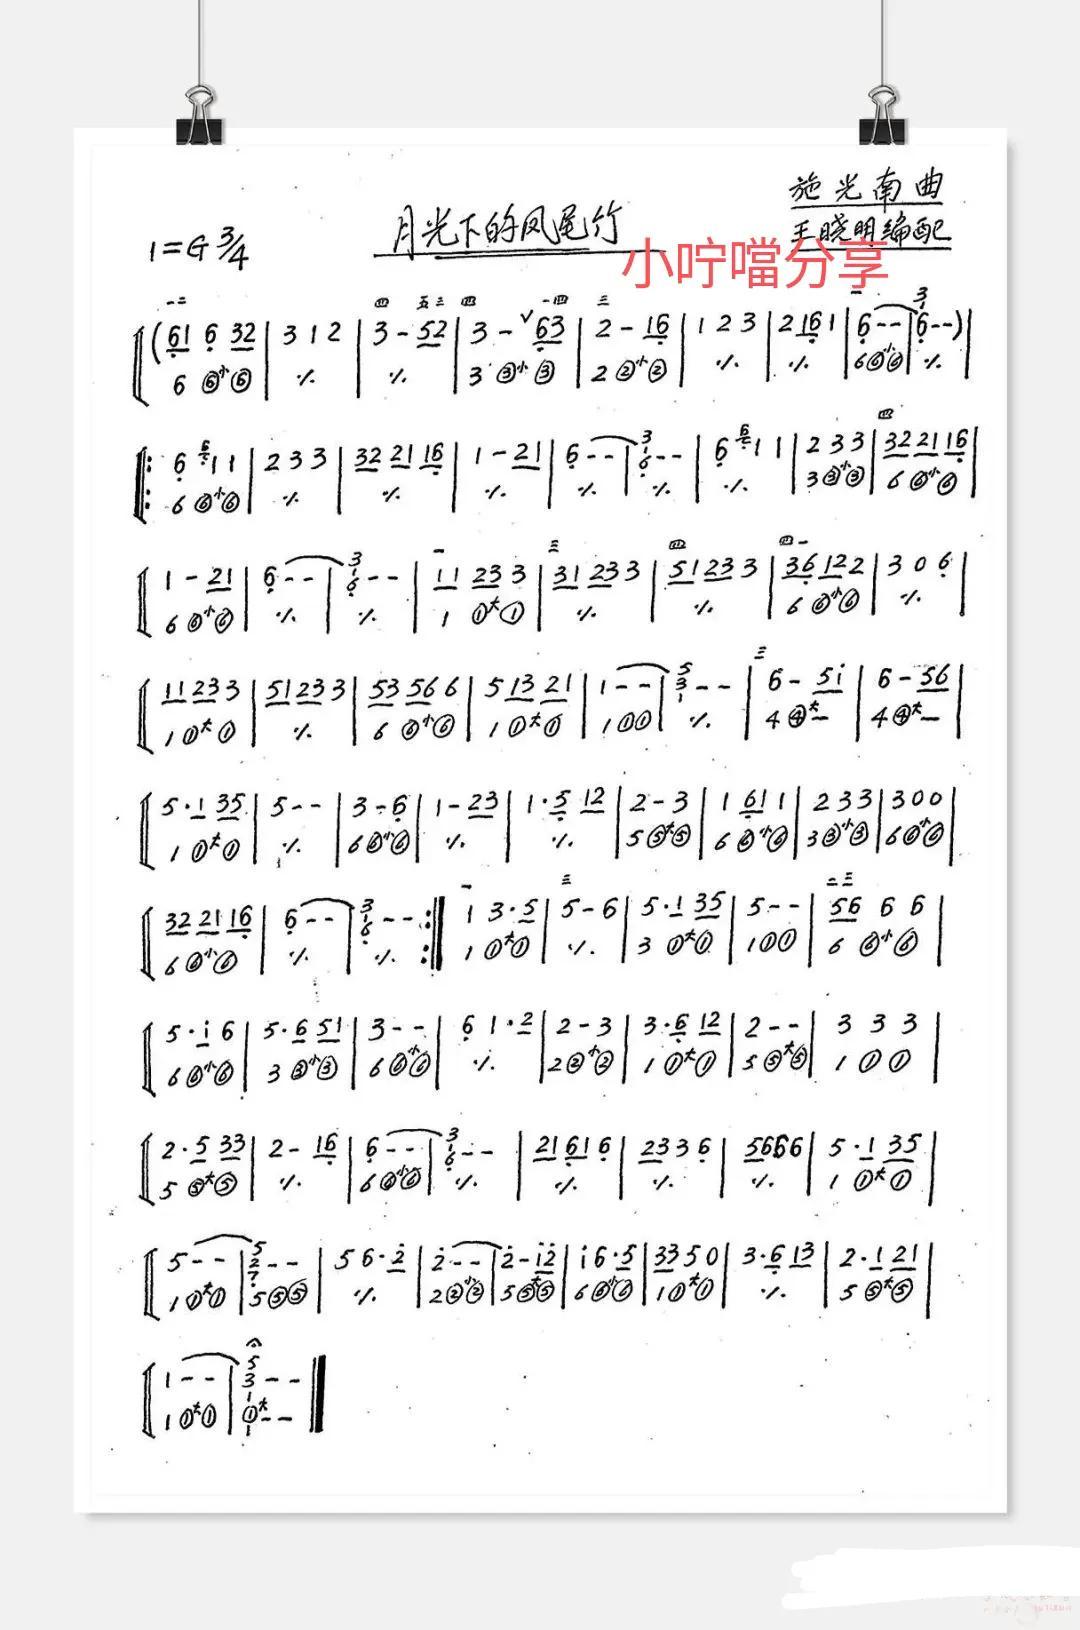 施光南曲
月光下的凤尾竹
王晓明编配
1=G 3/4
小咛噹分享
一二 四 五三 四 一四 三 一
(61 6 32 | 3 1 2 | 3 - 52 | 3 - ∨ 63 | 2 - 16 | 1 2 3 | 2 16 1 | 6 - - | 6 - - ) |
6 ⑥小⑥ | ٪ | ٪ | 3 ③小③ | 2 ②小② | ٪ | ٪ | 6 ⑥小⑥ | ٪ |
四
6 1 1 | 2 3 3 | 32 21 16 | 1 - 21 | 6 - - | 6 - - | 6 1 1 | 2 3 3 | 32 21 16 |
6 ⑥小⑥ | ٪ | ٪ | ٪ | ٪ | ٪ | ٪ | 3 ③小③ | 6 ⑥小⑥ |
一 三 四 四一
1 - 21 | 6 - - | 6 - - | 11 23 3 | 31 23 3 | 51 23 3 | 36 12 2 | 3 0 6 |
6 ⑥小⑥ | ٪ | ٪ | 1 ①大① | ٪ | ٪ | 6 ⑥小⑥ | ٪ |
三
11 23 3 | 51 23 3 | 53 56 6 | 5 13 21 | 1 - - | 1 - - | 6 - 5i | 6 - 56 |
1 ①大① | ٪ | 6 ⑥小⑥ | 1 ①大① | 1 ① ① | ٪ | 4 ④大 - | 4 ④大 - |
5 · 1 35 | 5 - - | 3 - 6 | 1 - 23 | 1 · 5 12 | 2 - 3 | 1 61 1 | 2 3 3 | 3 0 0 |
1 ①大① | ٪ | 6 ⑥小⑥ | ٪ | ٪ | 5 ⑤大⑤ | 6 ⑥小⑥ | 3 ③小③ | 6 ⑥小⑥ |
一 三 二三
32 21 16 | 6 - - | 6 - - :| 1 3 · 5 | 5 - 6 | 5 · 1 35 | 5 - - | 56 6 6 |
6 ⑥小⑥ | ٪ | ٪ | 1 ①大① | ٪ | 3 ①大① | 1 ① ① | 6 ⑥小⑥ |
5 · i 6 | 5 · 6 51 | 3 - - | 6 1 · 2 | 2 - 3 | 3 · 6 12 | 2 - - | 3 3 3 |
6 ⑥小⑥ | 3 ③小③ | 6 ⑥小⑥ | ٪ | 2 ②小② | 1 ①大① | 5 ⑤大⑤ | 1 ① ① |
2 · 5 33 | 2 - 16 | 6 - - | 6 - - | 21 61 6 | 23 3 6 | 56 6 6 | 5 · 1 35 |
5 ⑤大⑤ | ٪ | 6 ⑥小⑥ | ٪ | ٪ | ٪ | ٪ | 1 ①大① |
5 - - | 5 - - | 5 6 · 2 | 2 - - | 2 - i2 | i 6 · 5 | 33 5 0 | 3 · 6 13 | 2 · 1 21 |
1 ①大① | 5 ⑤ ⑤ | ٪ | 2 ②小② | 5 ⑤大⑤ | 6 ⑥小⑥ | 1 ①大① | ٪ | 5 ⑤大⑤ |
1 - - | 5 3 1 - - ‖
1 ①大① | ①大 - - ‖